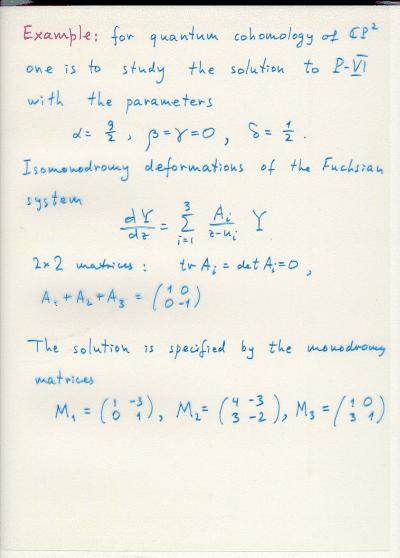 Example: for quantum cohomology of CP²
one is to study the solution to P-VI
with the parameters
α = 9/2, β = γ = 0, δ = 1/2.
Isomonodromy deformations of the Fuchsian
system
dY/dz = Σ_{i=1}^{3} A_i/(z-u_i) Y
2×2 matrices: tr A_i = det A_i = 0,
A_1 + A_2 + A_3 = (1 0; 0 -1)
The solution is specified by the monodromy
matrices
M_1 = (1 -3; 0 1), M_2 = (4 -3; 3 -2), M_3 = (1 0; 3 1)